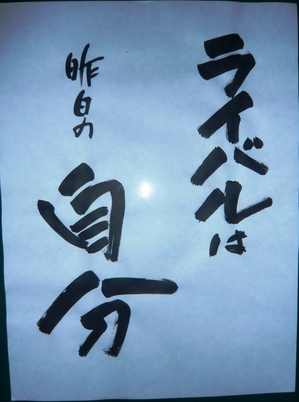 ライバルは
昨日の
自分